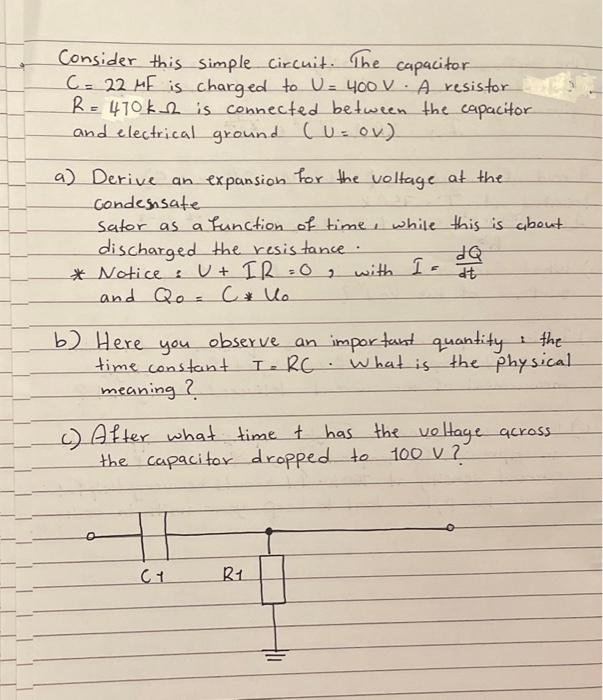 Consider this simple circuit. The capacitor
C = 22 µF is charged to U = 400 V. A resistor
R = 470 kΩ is connected between the capacitor
and electrical ground (U = 0V)
a) Derive an expansion for the voltage at the
condensate
sator as a function of time, while this is about
discharged the resistance.
* Notice : U + IR = 0 , with I = dQ/dt
and Q0 = C * U0
b) Here you observe an important quantity : the
time constant T = RC. What is the physical
meaning ?
c) After what time t has the voltage across
the capacitor dropped to 100 V ?
C1 R1